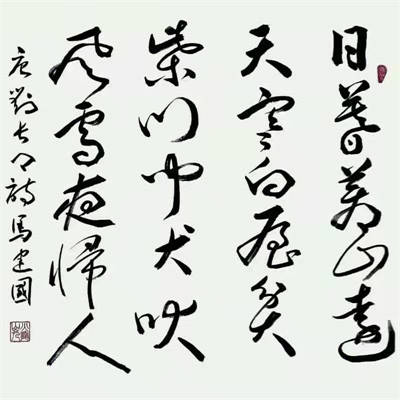 日暮蒼山遠
天寒白屋貧
柴門聞犬吠
風雪夜歸人
唐劉長卿詩馬建國